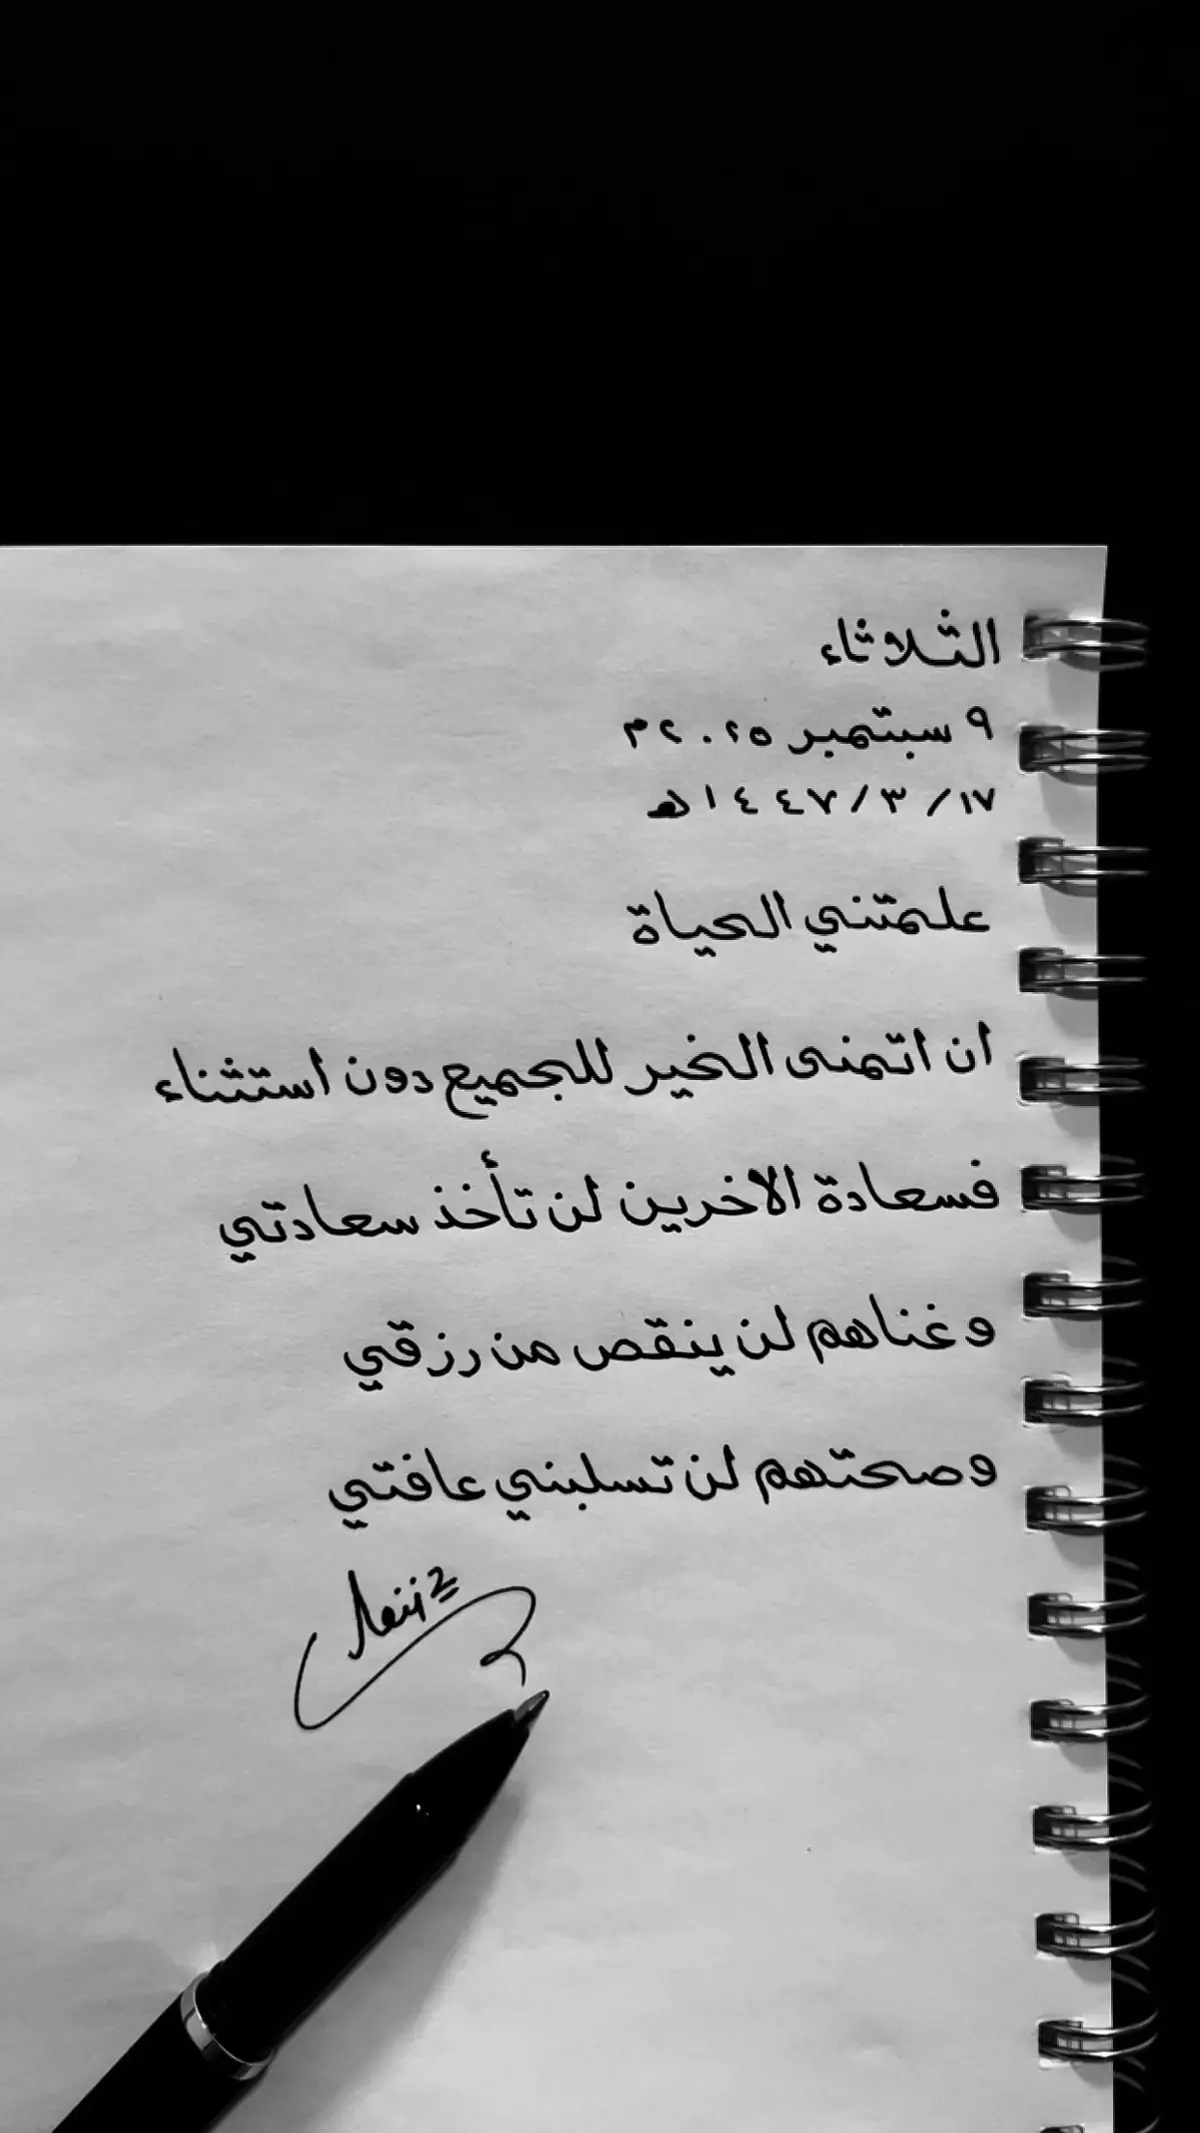 الثلاثاء
٩ سبتمبر ٢٠٢٥م
١٧/ ٣/ ١٤٤٧هـ
علمتني الحياة
ان اتمنى الخير للجميع دون استثناء
فسعادة الاخرين لن تأخذ سعادتي
وغناهم لن ينقص من رزقي
وصحتهم لن تسلبني عافتي